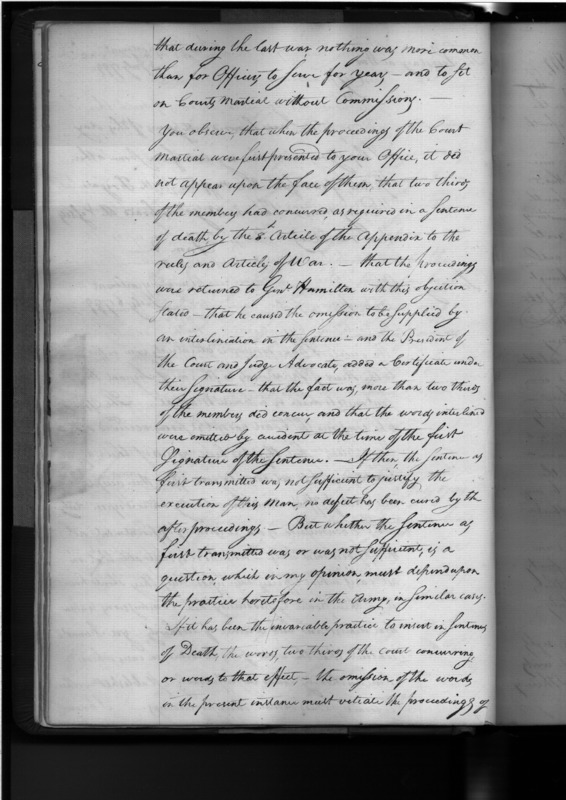 that during the last war nothing was more common
than for Officers to serve for years – and to sit
on Courts Martial without Commissions. –
You observe, that when the proceedings of the Court
Martial were first presented to your Office, it did
not appear upon the face of them, that two thirds
of the members had concurred, as required in a Sentence
of death by the 8th Article of the Appendix to the
rules and Articles of War. – that the proceedings
were returned to Genl Hamilton with this objection
stated – that he caused the omission to be supplied by
an interlineation in the sentence – and the President of
the Court and Judge Advocate, added a Certificate under
their signature – that the fact was, more than two thirds
of the members did concur, and that the words interlined
were omitted by accident at the time of the first
Signature of the Sentence. – If then the Sentence as
first transmitted was not sufficient to justify the
execution of this Man, no defect has been cured by the
after proceedings – But whether the Sentence as
first transmitted was or was not sufficient, is a
question, which in my opinion, must depend upon
the practice heretofore in the Army, in similar cases.
If it has been the invariable practice to insert in Sentences
of Death, the words, two thirds of the Court concurring,
or words to that effect, – the omission of the words,
in the present instance must vitiate the proceedings of